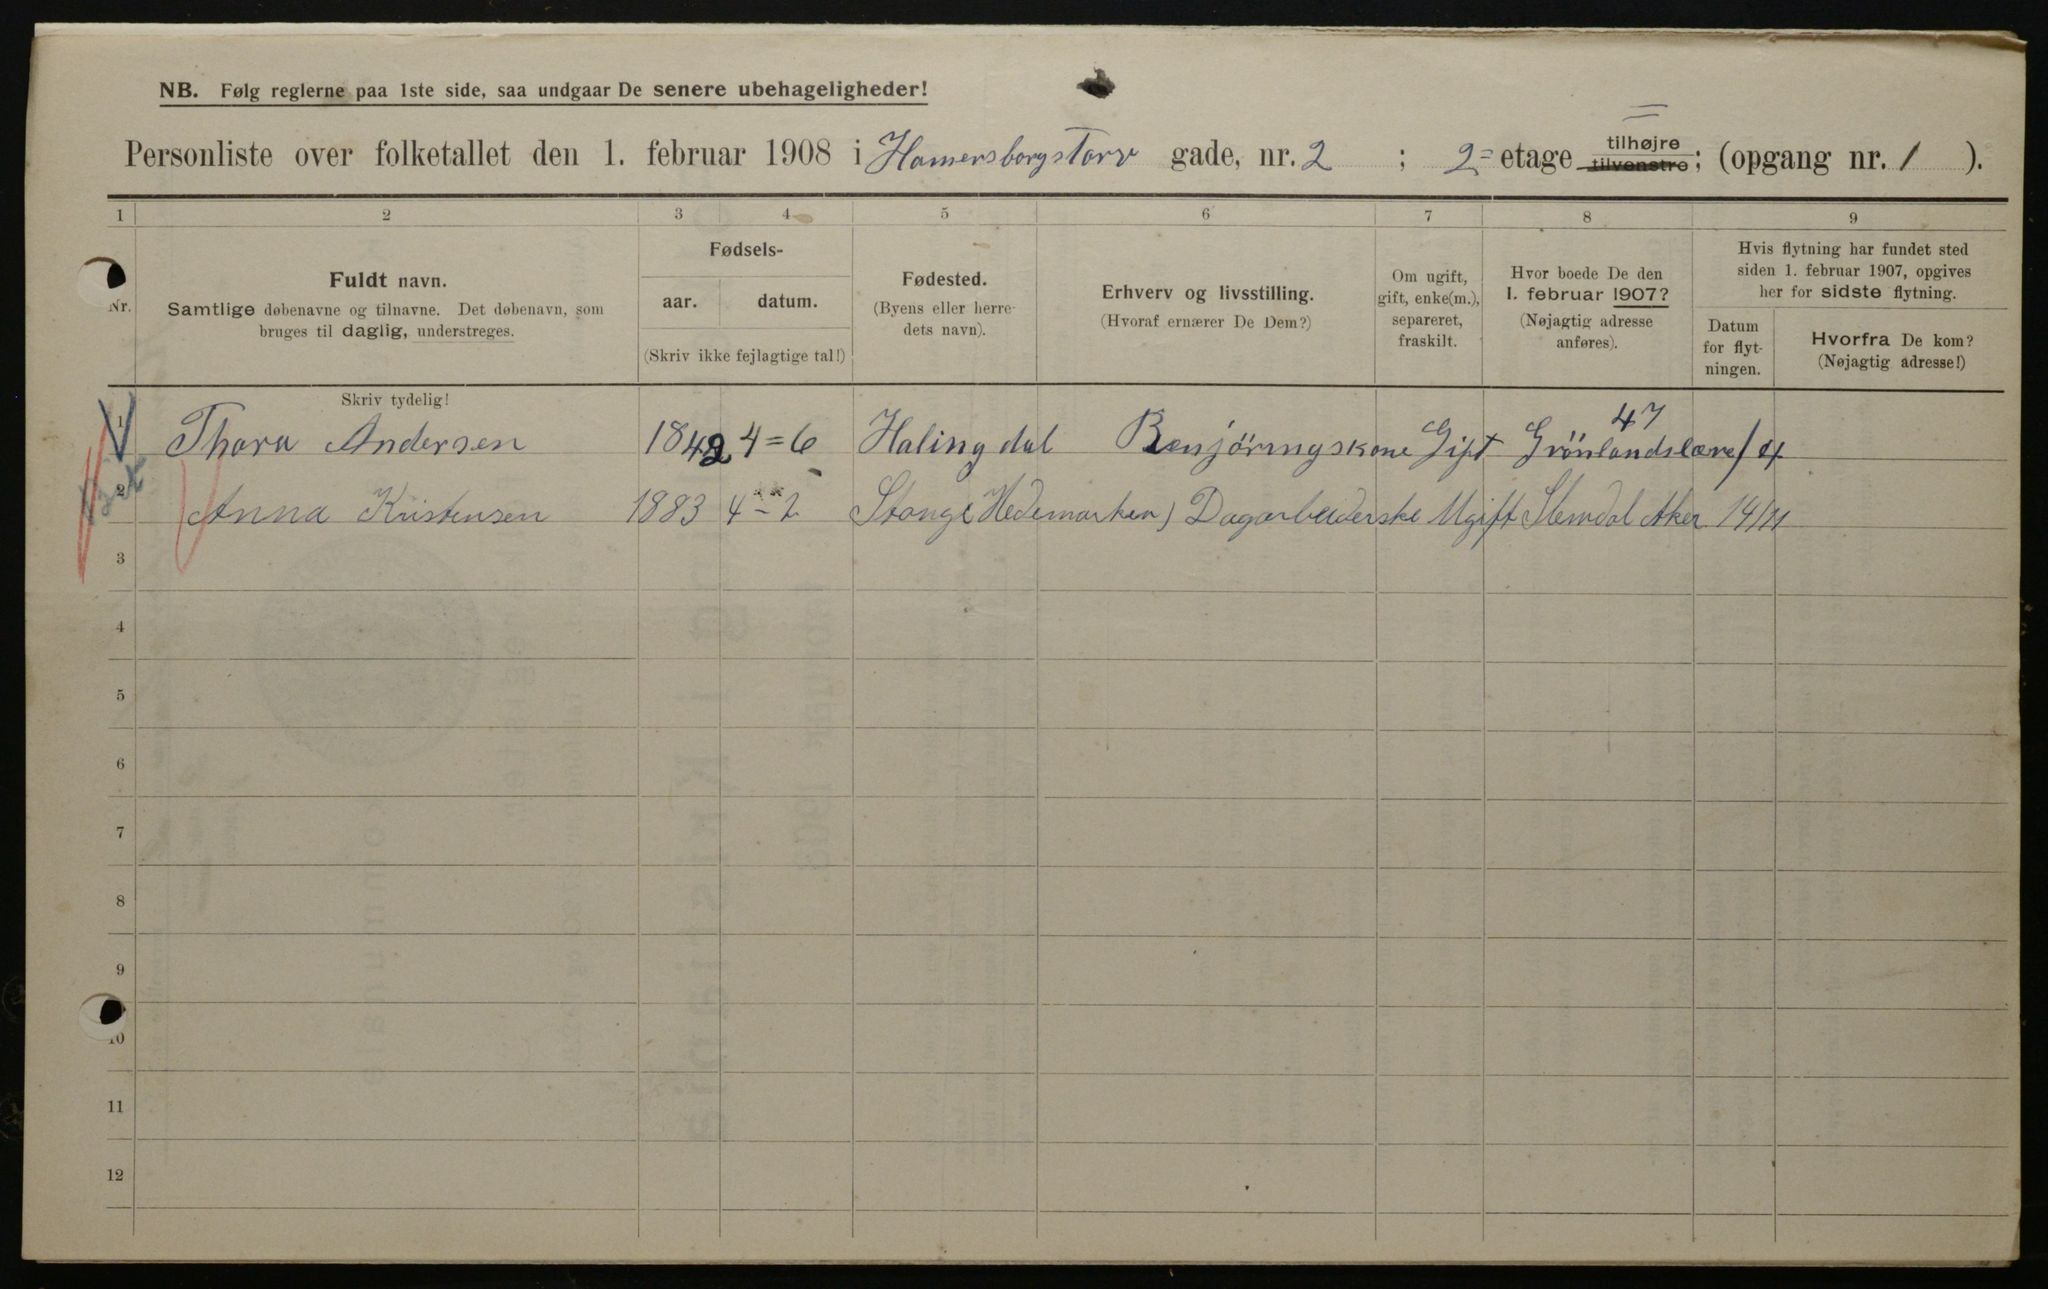 NB. Følg reglerne paa 1ste side, saa undgaar De senere ubehageligheder!
Personliste over folketallet den 1. februar 1908 i Hamersborgstorv gade, nr. 2 ; 2= etage tilhøjre tilvenstre; (opgang nr. 1 ).
1 2 3 4 5 6 7 8 9
Nr.
Fuldt navn.
Samtlige døbenavne og tilnavne. Det døbenavn, som
bruges til daglig, understreges.
Skriv tydelig!
Fødsels-
aar. datum.
(Skriv ikke fejlagtige tal!)
Fødested.
(Byens eller herre-
dets navn).
Erhverv og livsstilling.
(Hvoraf ernærer De Dem?)
Om ugift,
gift, enke(m.),
separeret,
fraskilt.
Hvor boede De den
1. februar 1907?
(Nøjagtig adresse
anføres).
Hvis flytning har fundet sted
siden 1. februar 1907, opgives
her for sidste flytning.
Datum
for flyt-
ningen.
Hvorfra De kom?
(Nøjagtig adresse!)
1 Thora Andersen 1842 4=6 Halingdal Renjöringskone Gift Grönlandslære 47 / 4
2 Anna Kristensen 1883 4-2 Stange Hedemarken) Dagarbeiderske Ugift Slemdal Aker 14/11
3
4
5
6
7
8
9
10
11
12